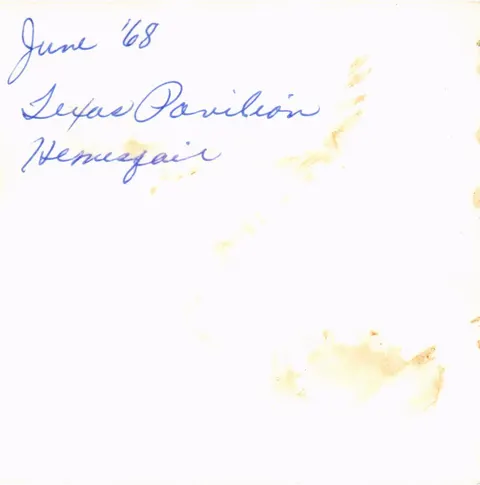 June '68
Texas Pavilion
Hemisfair